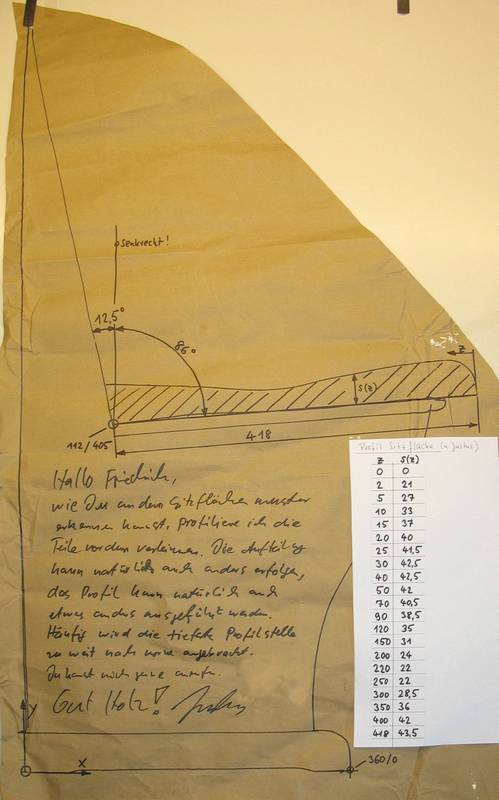 senkrecht!
12,5°
86°
z
S(z)
112/405
418
Hallo Friedrich,
wie Du an dem Sitzflächenmuster
erkennen kannst, profiliere ich die
Teile vor dem verleimen. Die Aufteilung
kann natürlich auch anders erfolgen,
das Profil kann natürlich auch
etwas anders ausgeführt werden.
Häufig wird die tiefste Profilstelle
zu weit nach vorne angebracht.
Du kannst mich gerne anrufen.
Gut Holz!
Profil Sitzfläche (n. Justus)
z S(z)
0 0
2 21
5 27
10 33
15 37
20 40
25 41,5
30 42,5
40 42,5
50 42
70 40,5
90 38,5
120 35
150 31
200 24
220 22
250 22
300 28,5
350 36
400 42
418 43,5
y
x
360/0